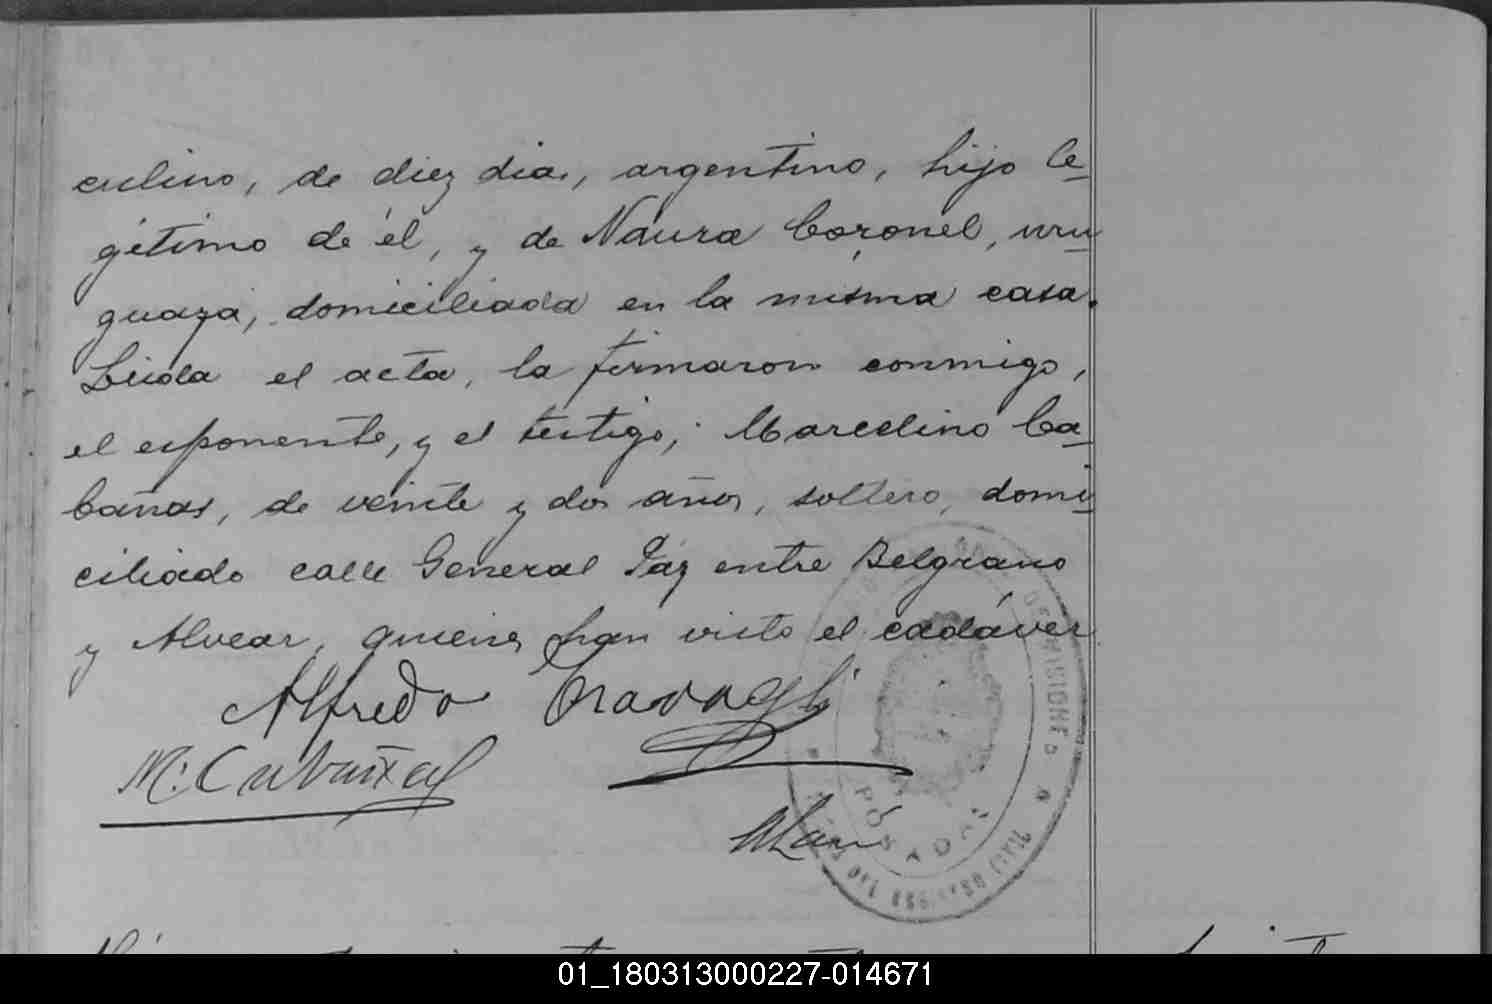 culino, de diez dias, argentino, hijo le-
gitimo de él, y de Naura Coronel, uru-
guaya, domiciliada en la misma casa.
Leida el acta, la firmaron conmigo,
el esponente, y el testigo; Marcelino Ca-
bañas, de veinte y dos años, soltero, domi-
ciliado calle General Páz entre Belgrano
y Alvear, quienes han visto el cadáver
Alfredo Travagli
M. Cabañas
POSADAS
01_180313000227-014671